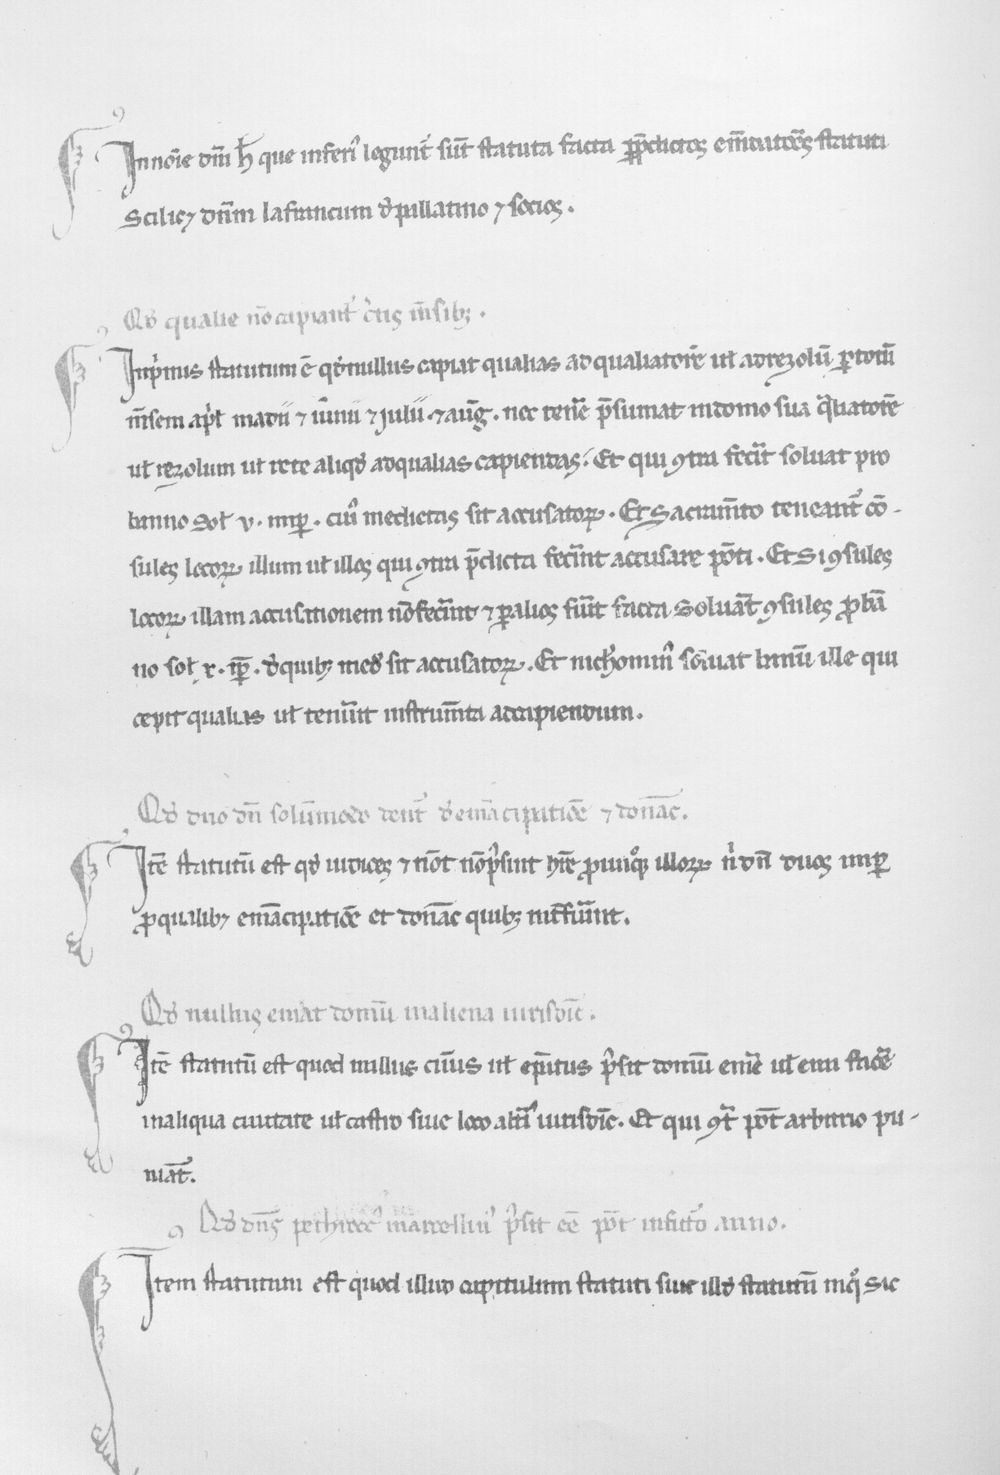 In noīe dn̄i h̄ que inferi᾽ legunt᾽ sūt statuta facta ꝑ p̄dictos em̄datores statuti
Scilicꝫ dn̄m lafrancum d᾽ pillatino ⁊ socios.
Qd᾽ qualie nō capiant᾽ c᾽tis m̄sibꝫ.
Inp᾽mis statutum ē qd᾽ nullus capiat qualias ad qualiatorē ul᾽ ad rezolū ꝑ totū
m̄sem ap᾽l᾽ madii ⁊ iunii ⁊ Julii ⁊ aug̅. nec tenē p̄sumat in domo sua q᾽liatorē
ul᾽ rezolum ul᾽ rete aliqd᾽ ad qualias capiendas. Et qui ꝯtra fec᾽it soluat pro
banno Sol᾽ v. imꝑ. cui᾽ medietas sit accusatoꝝ. Et Sacram̄to teneant᾽ cō-
sules locoꝝ illum ul᾽ illos qui ꝯtra p̄dicta fec᾽int accusare pōti. Et Si ꝯsules
locoꝝ illam accusationem nō fec᾽int ⁊ ꝑ alios fiu᾽it facta Soluāt ꝯsules ꝓ bā
no sol᾽ x. iꝑ. d᾽ quibꝫ med᾽ sit accusatoꝝ. Et nichomin᾽ soluat bannū ille qui
cepit qualias ul᾽ tenu᾽it instrum̄ta ad capiendum.
Qd᾽ duo dn̄ solūmodo dent᾽ d᾽ emācipatiōe ⁊ donac̄.
Itē statutū est qd᾽ iudices ⁊ nōt nō p᾽sint hr̄e illoꝝ n᾽ dn̄ duos imꝑ
ꝓ qualibꝫ emācipatiōe et donac̄ quibꝫ int̄fiu᾽int.
Qd᾽ nullus emat domū in aliena iurisdic̄.
Itē statutū est quod nullus ciuis ul᾽ ep̄itus p᾽sit domū em̄e ul᾽ emi fac᾽e
in aliqua ciuitate ul᾽ castro siue loco alt᾽i᾽ iurisdic̄. Et qui ꝯt᾽ pōt arbitrio pu-
niat᾽.
Qd᾽ dn̄s marcellin᾽ p᾽sit eē pōt in futu᾽o anno.
Item statutum est quod illud capitulum statuti siue illd᾽ statutū in qͦ sic